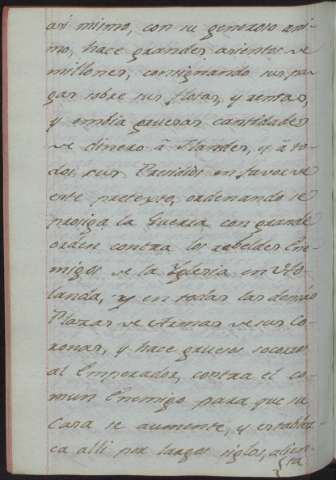 asi mismo, con su generoso ani-
mo, hace grandes asientos de
millones, consignando sus pa-
gas sobre sus flotas, y rentas,
y embia gruesas cantidades
de dinero â Flandes, y â to-
dos sus Presidios en favor de
este pretexto, ordenando se
prosiga la Guerra con grande
orden contra los rebeldes Ene-
migos de la Yglesia en Ho-
landa, y en todas las demás
Plazas de Armas de sus Co-
ronas, y hace gruesos socorros
al Emperador, contra el co-
mun Enemigo para que su
Casa se aumente, y establez-
ca alli por largos siglos,